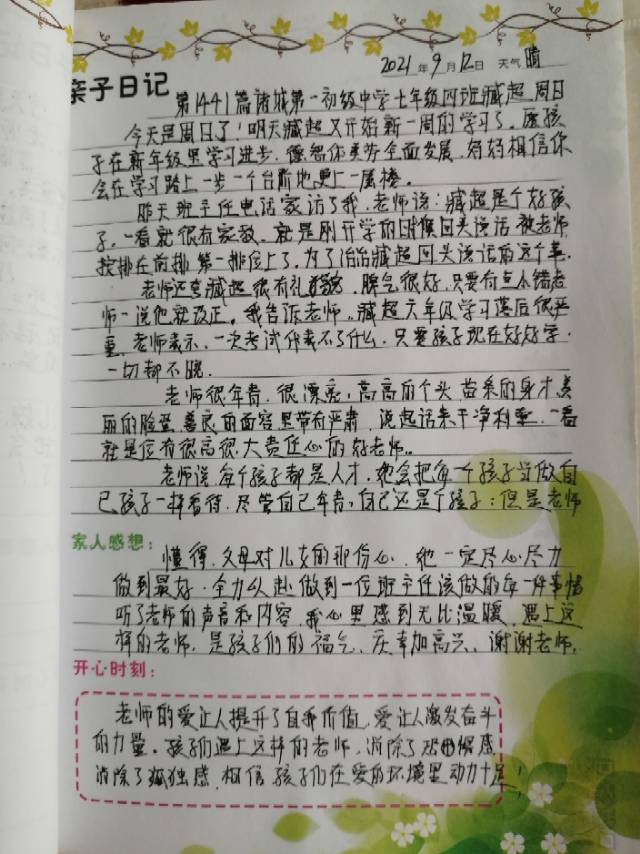 2021年9月12日 天气 晴
亲子日记
第1441篇诸城第一初级中学七年级四班臧超 周日
今天是周日了！明天臧超又开始新一周的学习了。愿孩
子在新年级里学习进步，德智体美劳全面发展，妈妈相信你
会在学习路上一步一个台阶地更上一层楼。
昨天班主任电话家访了我，老师说：臧超是个好孩
子。一看就很有家教。就是刚开学的时候回头说话 被老师
按排在前排 第一排位上了。为了治治臧超回头说话的这个事。
老师还夸臧超很有礼貌，脾气很好，只要有点小错老
师一说他就改正。我告诉老师。臧超六年级学习落后很严
重，老师表示，一次考试代表不了什么，只要孩子现在好好学，
一切都不晚。
老师很年青，很漂亮，高高的个头 苗条的身才 美
丽的脸登，善良的面容里带有严肃，说起话来干净利
一看
就是位有很高很大责任心的好老师。
老师说，每个孩子都是人才，她会把每一个孩子当做自
己孩子一样看待，尽管自己年青，自己还是个孩子；但是老师
家人感想：
懂得，父母对儿女的那份心，她一定尽心尽力
做到最好，全力以赴做到一位班主任该做的每一件事情
听了老师的声音和内容，我心里感到无比温暖，遇上这
样的老师，是孩子们的福气，庆幸加高兴，谢谢老师。
开心时刻：
老师的爱让人提升了自我价值，爱让人激发奋斗
的力量。孩子们遇上这样的老师，消除了
感
消除了孤独感，相信孩子们在爱的环境里动力十足！